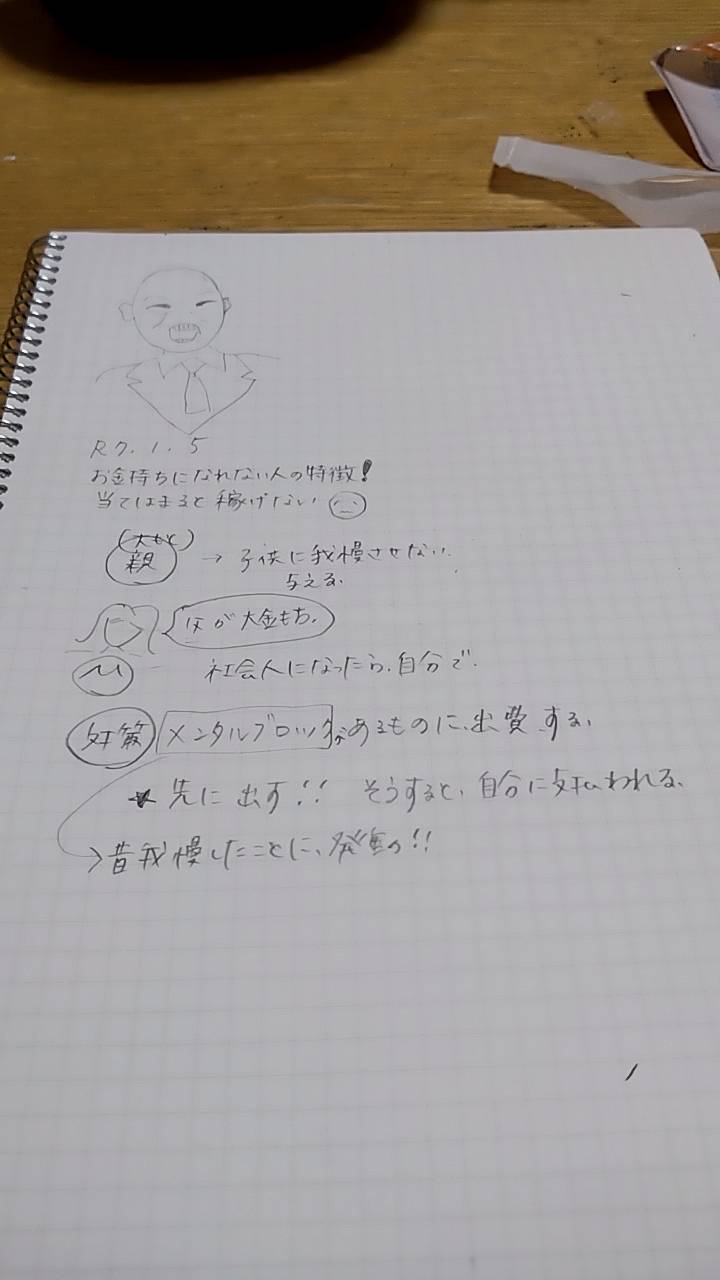 R7.1.5
お金持ちになれない人の特徴!
当てはまると稼げない
(大もと)
親 → 子供に我慢させない.
与える.
父が大金もち.
社会人になったら、自分で.
対策 メンタルブロックがあるものに、出費する.
先に出す!! そうすると、自分に払われる.
→昔我慢したことに、